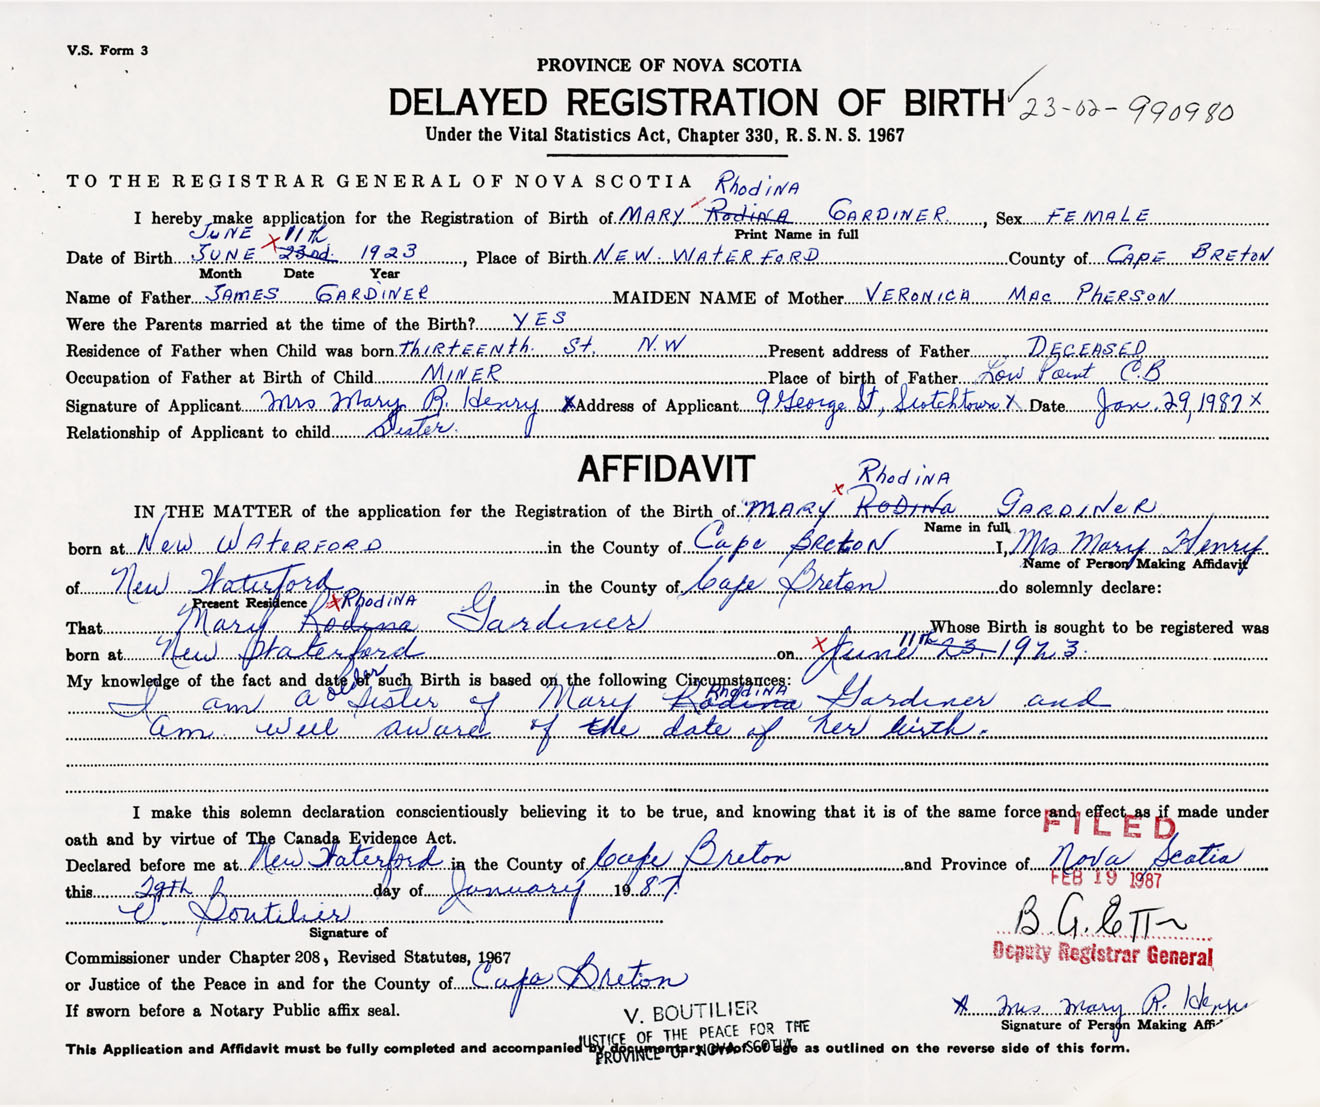 V.S. Form 3
PROVINCE OF NOVA SCOTIA
DELAYED REGISTRATION OF BIRTH ✓ 23-02-990980
Under the Vital Statistics Act, Chapter 330, R.S.N.S. 1967
TO THE REGISTRAR GENERAL OF NOVA SCOTIA
Rhodina
I hereby make application for the Registration of Birth of MARY Rodina GARDINER, Sex FEMALE
Print Name in full
JUNE 11th
Date of Birth JUNE x 23rd. 1923, Place of Birth NEW. WATERFORD County of CAPE BRETON
Month Date Year
Name of Father JAMES GARDINER MAIDEN NAME of Mother VERONICA MAC PHERSON
Were the Parents married at the time of the Birth? YES
Residence of Father when Child was born THIRTEENTH. St. N.W Present address of Father DECEASED
Occupation of Father at Birth of Child MINER Place of birth of Father Low Point C.B
Signature of Applicant Mrs Mary R. Henry x Address of Applicant 9 George St, Scotchtown x Date Jan. 29, 1987 x
Relationship of Applicant to child Sister.
AFFIDAVIT
Rhodina
IN THE MATTER of the application for the Registration of the Birth of MARY x RODINa GARDINER
Name in full
born at New WATERFORD in the County of Cape BRETON I, Mrs Mary Henry
Name of Person Making Affidavit
of New Waterford in the County of Cape Breton do solemnly declare:
Present Residence x Rhodina
That Mary Rodina Gardiner Whose Birth is sought to be registered was
born at New Waterford on x June 11th 23. 1923.
My knowledge of the fact and date of such Birth is based on the following Circumstances:
older Rhodina
I am a Sister of Mary Rodina Gardiner and
am well aware of the date of her birth.
I make this solemn declaration conscientiously believing it to be true, and knowing that it is of the same force and effect as if made under
FILED
oath and by virtue of The Canada Evidence Act.
Declared before me at New Waterford in the County of Cape Breton and Province of Nova Scotia
FEB 19 1987
this 29th day of January 19 87.
V Boutilier
Signature of
Deputy Registrar General
Commissioner under Chapter 208, Revised Statutes, 1967
or Justice of the Peace in and for the County of Cape Breton
If sworn before a Notary Public affix seal.
x Mrs Mary R. Henry
Signature of Person Making Affi
V. BOUTILIER
JUSTICE OF THE PEACE FOR THE
PROVINCE OF NOVA SCOTIA
This Application and Affidavit must be fully completed and accompanied by documentary proof of age as outlined on the reverse side of this form.